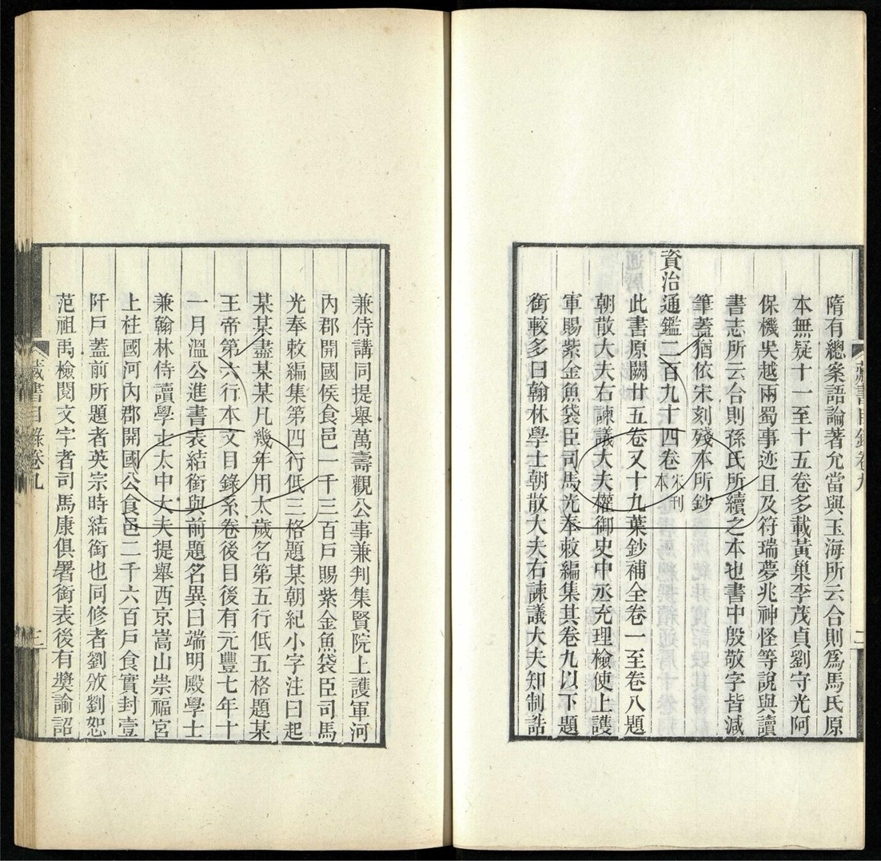 隋有總案語論著允當與玉海所云合則爲馬氏原
本無疑十一至十五卷多載黃巢李茂貞劉守光阿
保機吳越兩蜀事迹且及符瑞夢兆神怪等說與讀
書志所云合則孫氏所續之本也書中殷敬字皆減
筆蓋猶依宋刻殘本所鈔
資治通鑑二百九十四卷宋刊本
此書原闕廿五卷又十九葉鈔補全卷一至卷八題
朝散大夫右諫議大夫權御史中丞充理檢使上護
軍賜紫金魚袋臣司馬光奉敕編集其卷九以下題
銜較多曰翰林學士朝散大夫右諫議大夫知制誥
藏書目錄卷九
二
兼侍講同提舉萬壽觀公事兼判集賢院上護軍河
內郡開國侯食邑一千三百戶賜紫金魚袋臣司馬
光奉敕編集第四行低三格題某朝紀小字注曰起
某某盡某某凡幾年用太歲名第五行低五格題某
王帝第六行本文目錄系卷後目後有元豐七年十
一月溫公進書表結銜與前題名異曰端明殿學士
兼翰林侍讀學士太中大夫提舉西京嵩山崇福宮
上柱國河內郡開國公食邑二千六百戶食實封壹
阡戶蓋前所題者英宗時結銜也同修者劉攽劉恕
范祖禹檢閱文字者司馬康俱署銜表後有奬諭詔
藏書目錄卷九
三